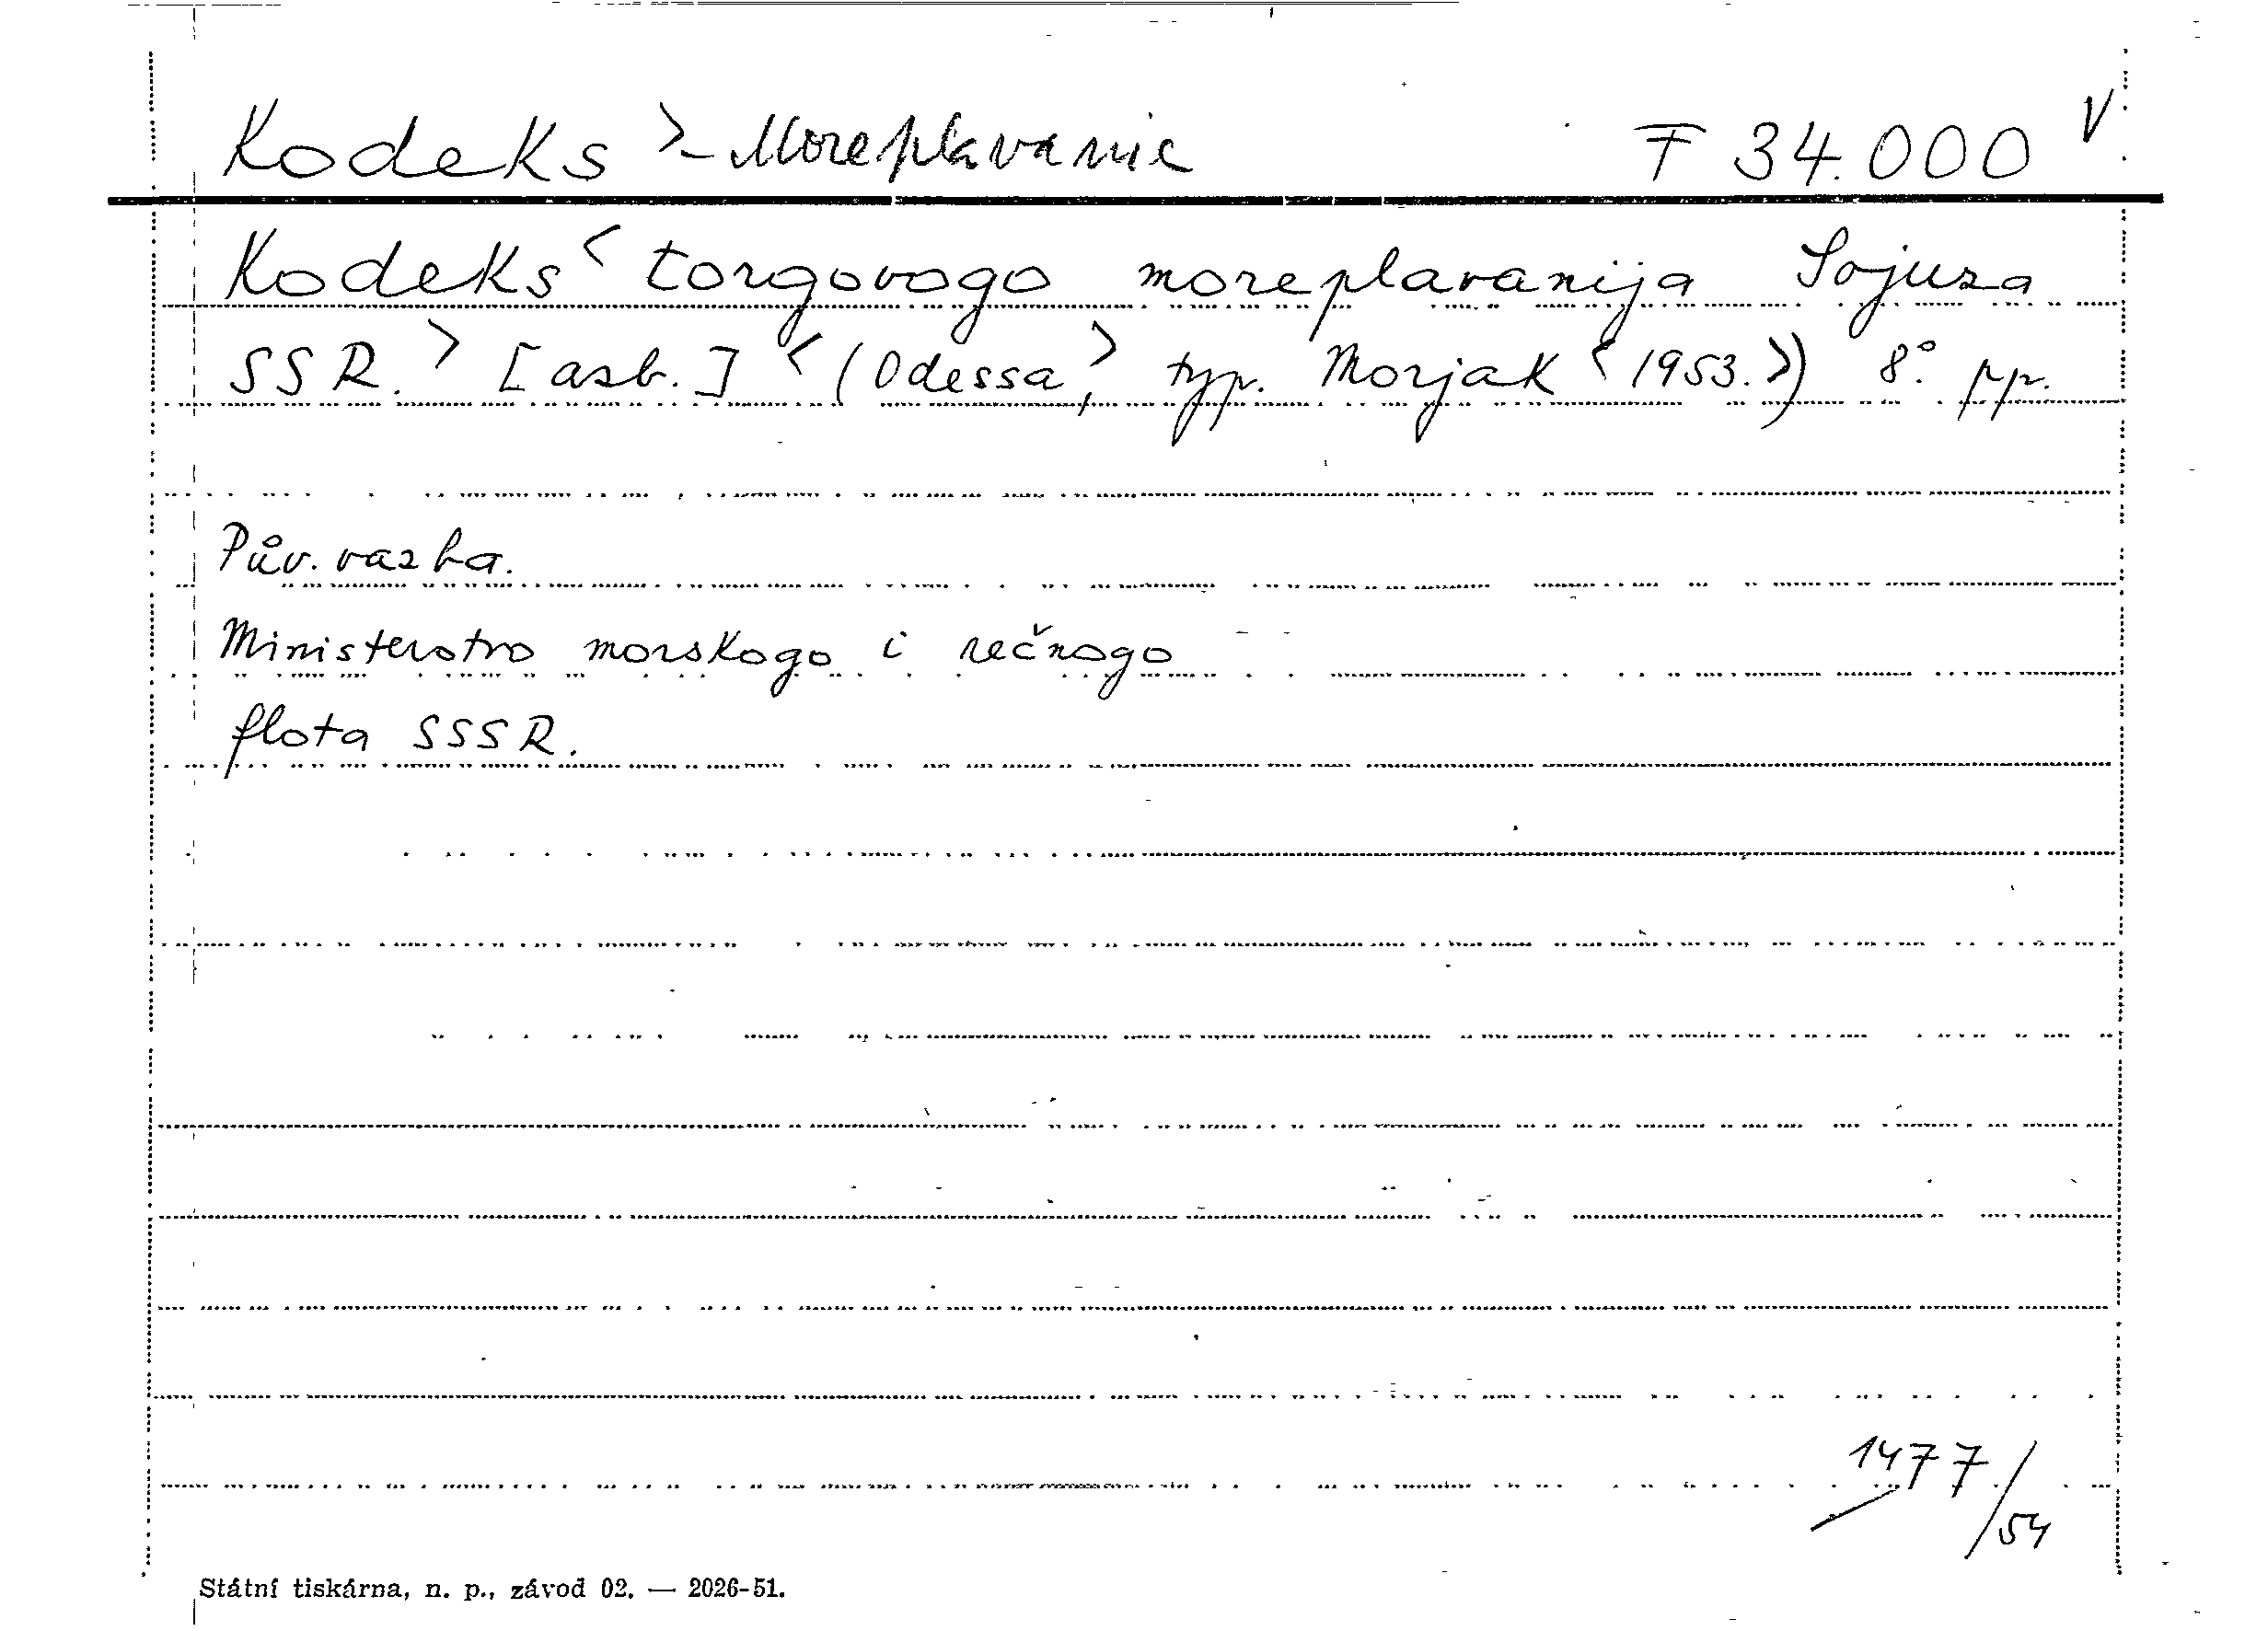 Kodeks > - Moreplavanie F 34.000 V
Kodeks < torgovogo moreplavanija Sojuza
SSR. > [azb.] < (Odessa, > typ. Morjak < 1953. >) 8°. pp.
Pův. vazba.
Ministerstvo morskogo i rečnogo
flota SSSR.
1477/54
Státní tiskárna, n. p., závod 02. — 2026-51.